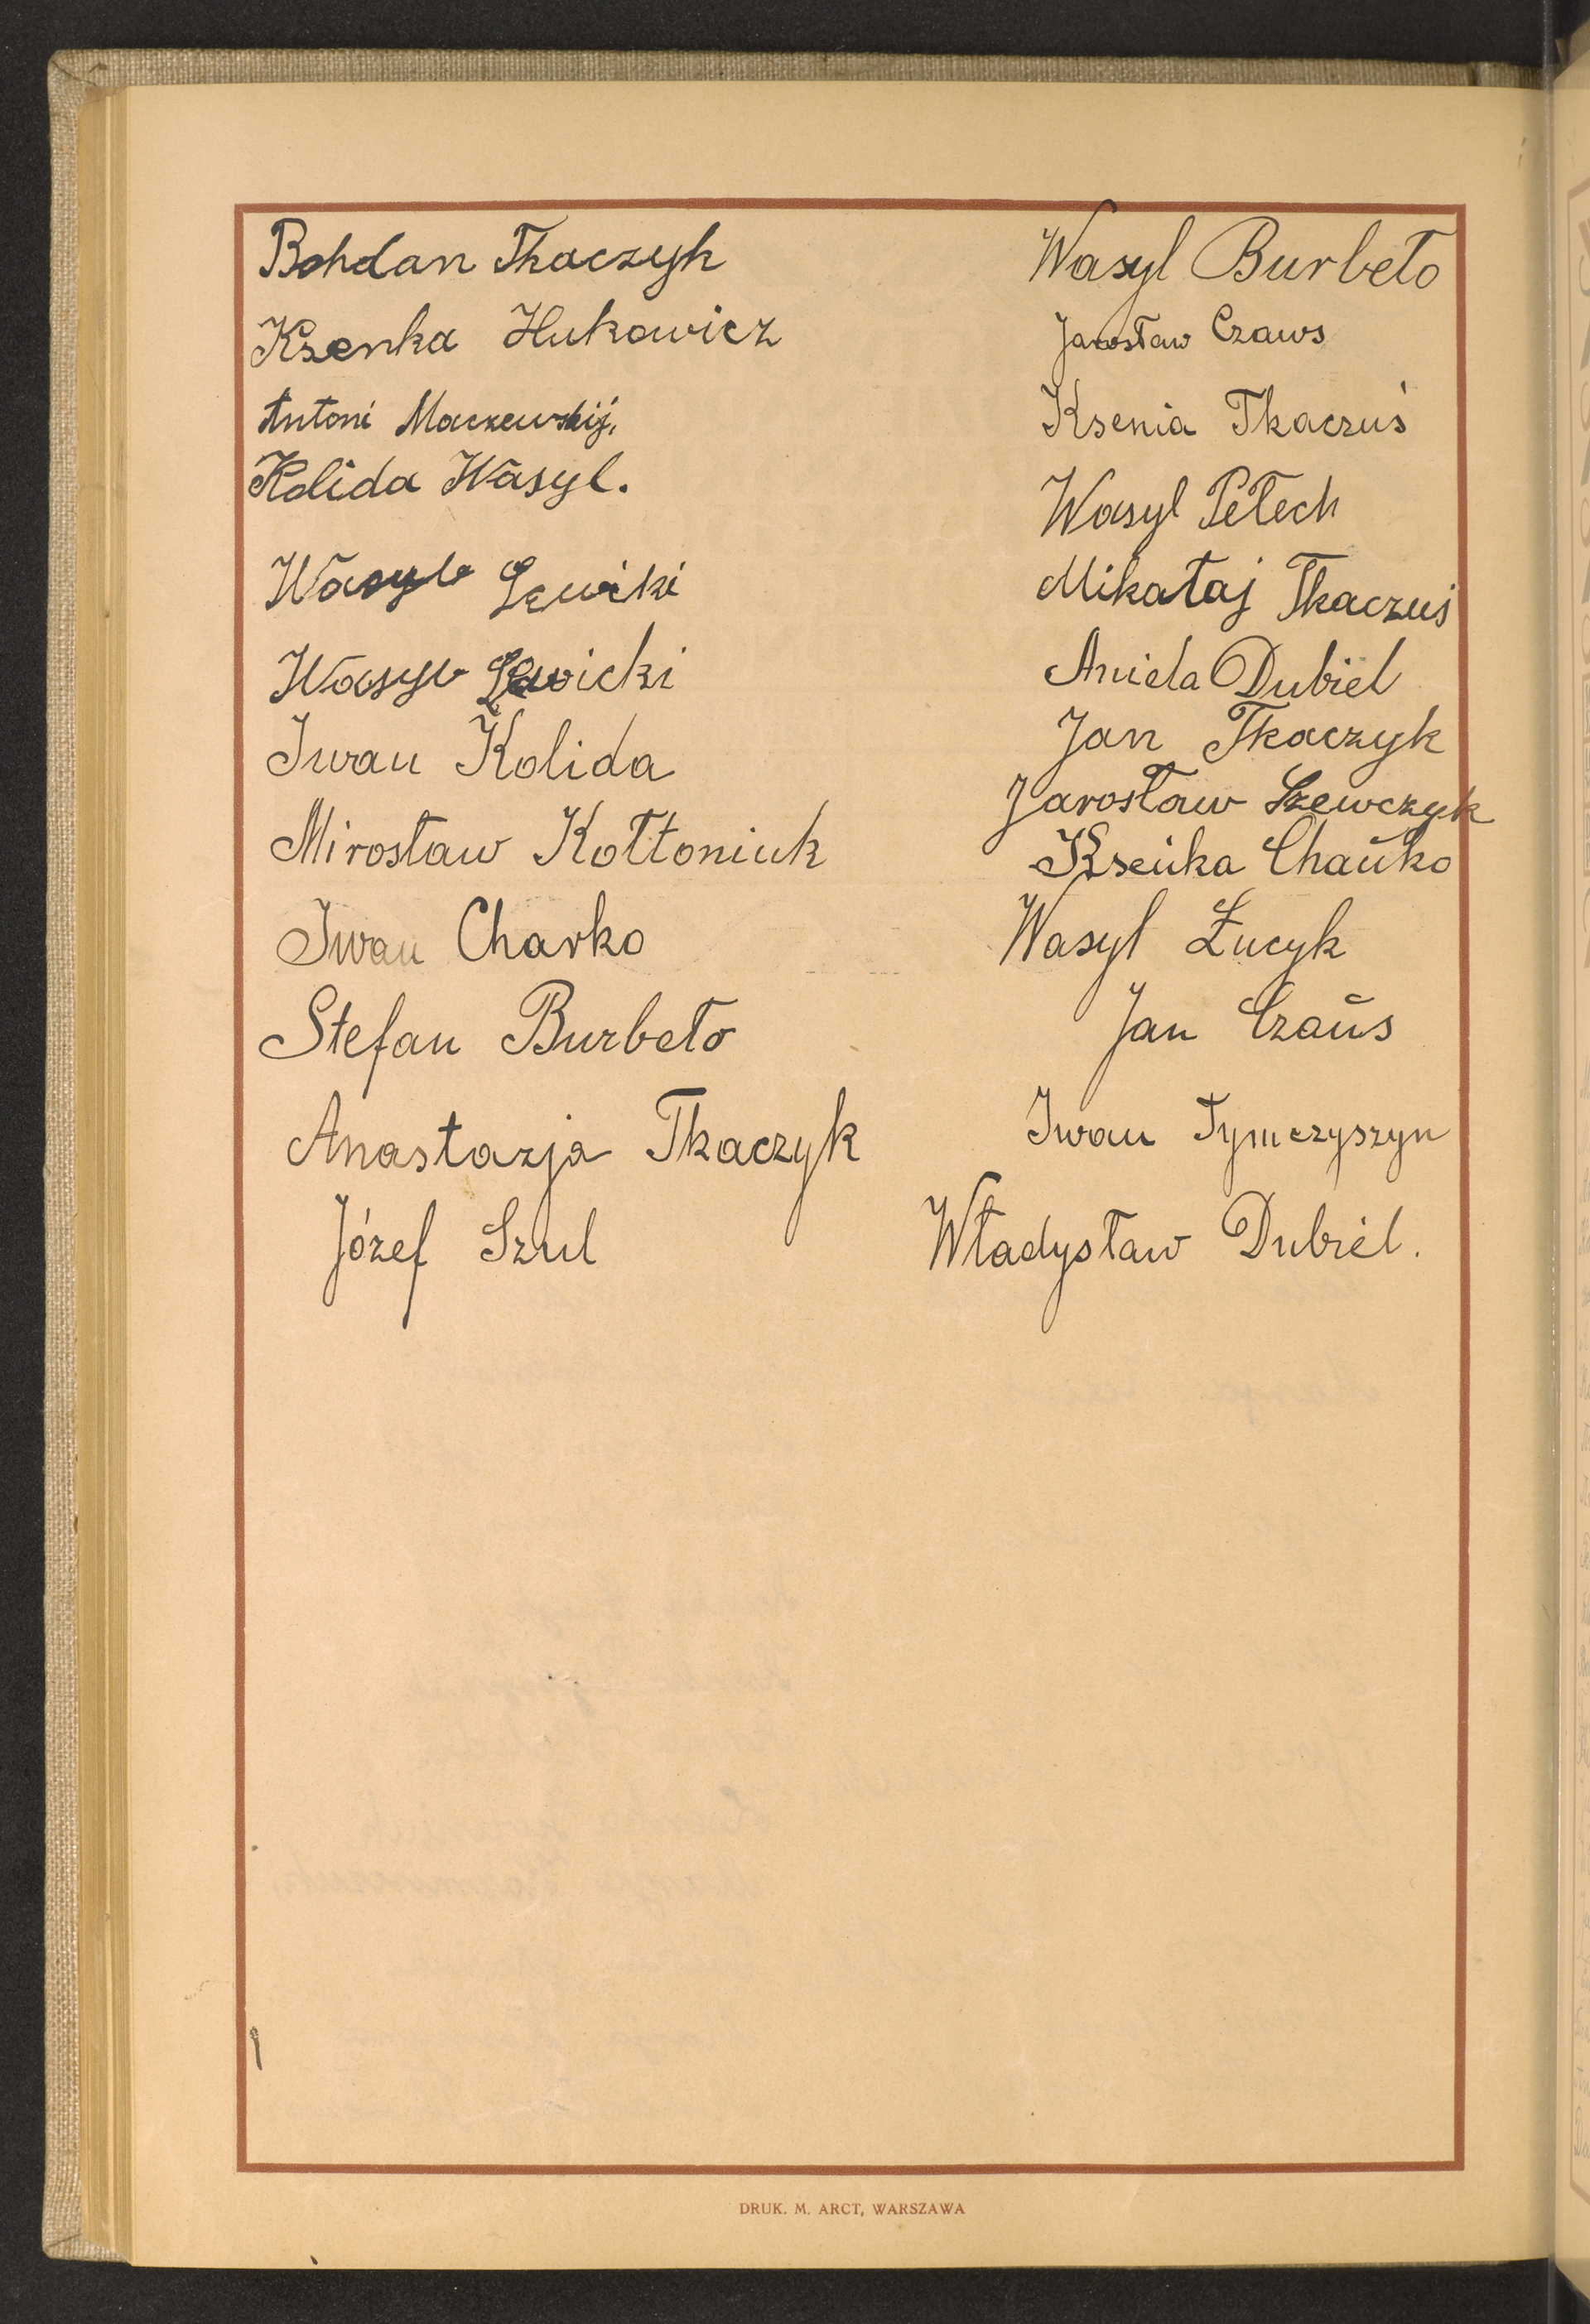 Bohdan Tkaczyk
Ksenka Hukowicz
Antoni Maczewskij,
Kolida Wasyl.
Wasyl Lewicki
Wasyl Lewicki
Iwan Kolida
Mirosław Kołtoniuk
Iwan Charko
Stefan Burbeło
Anastazja Tkaczyk
Józef Szul
Wasyl Burbeło
Jarosław Czaws
Ksenia Tkaczuś
Wasyl Petech
Mikałaj Tkaczuś
Aniela Dubiel
Jan Tkaczyk
Jarosław Szewczyk
Kseńka Chaŭko
Wasyl Łucyk
Jan Czaŭs
Iwan Tymczyszyn
Władysław Dubiel.
DRUK. M. ARCT, WARSZAWA